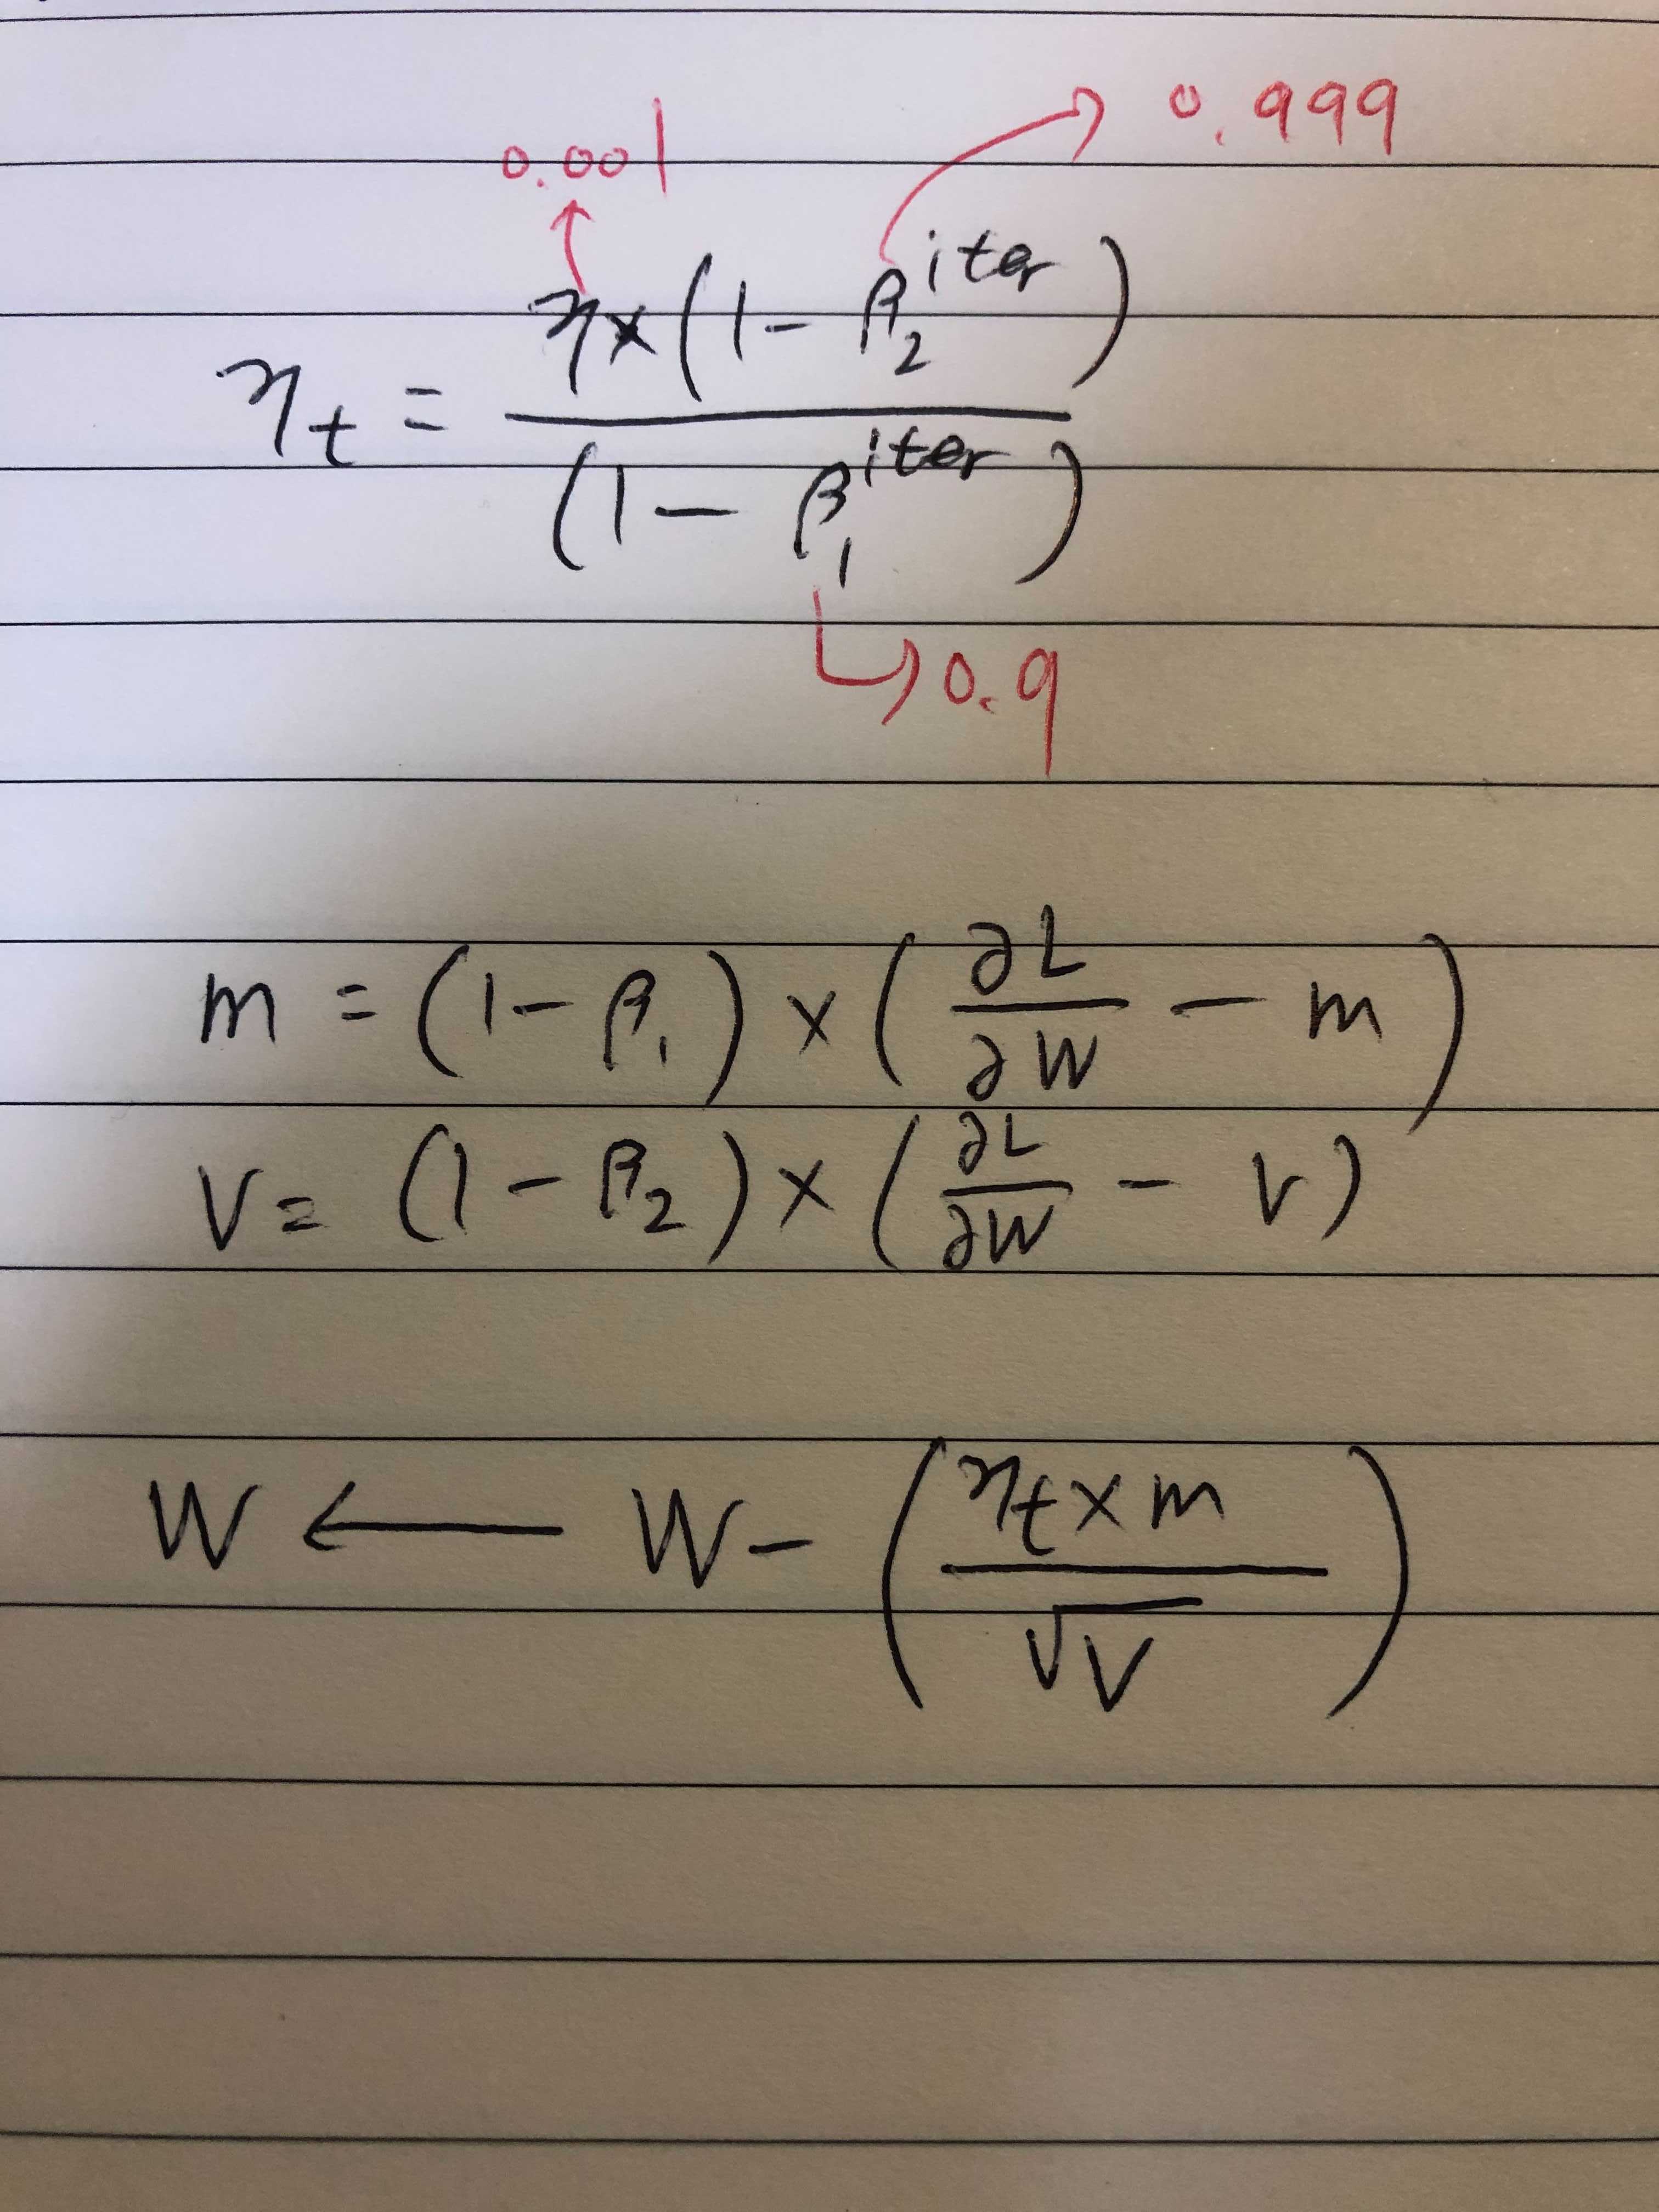 0.001 0.999
η_t = η×(1-β₂^iter) / (1-β₁^iter)
0.9
m = (1-β₁) × (∂L/∂W - m)
V = (1-β₂) × (∂L/∂W - V)
W ← W - (η_t × m / √V)